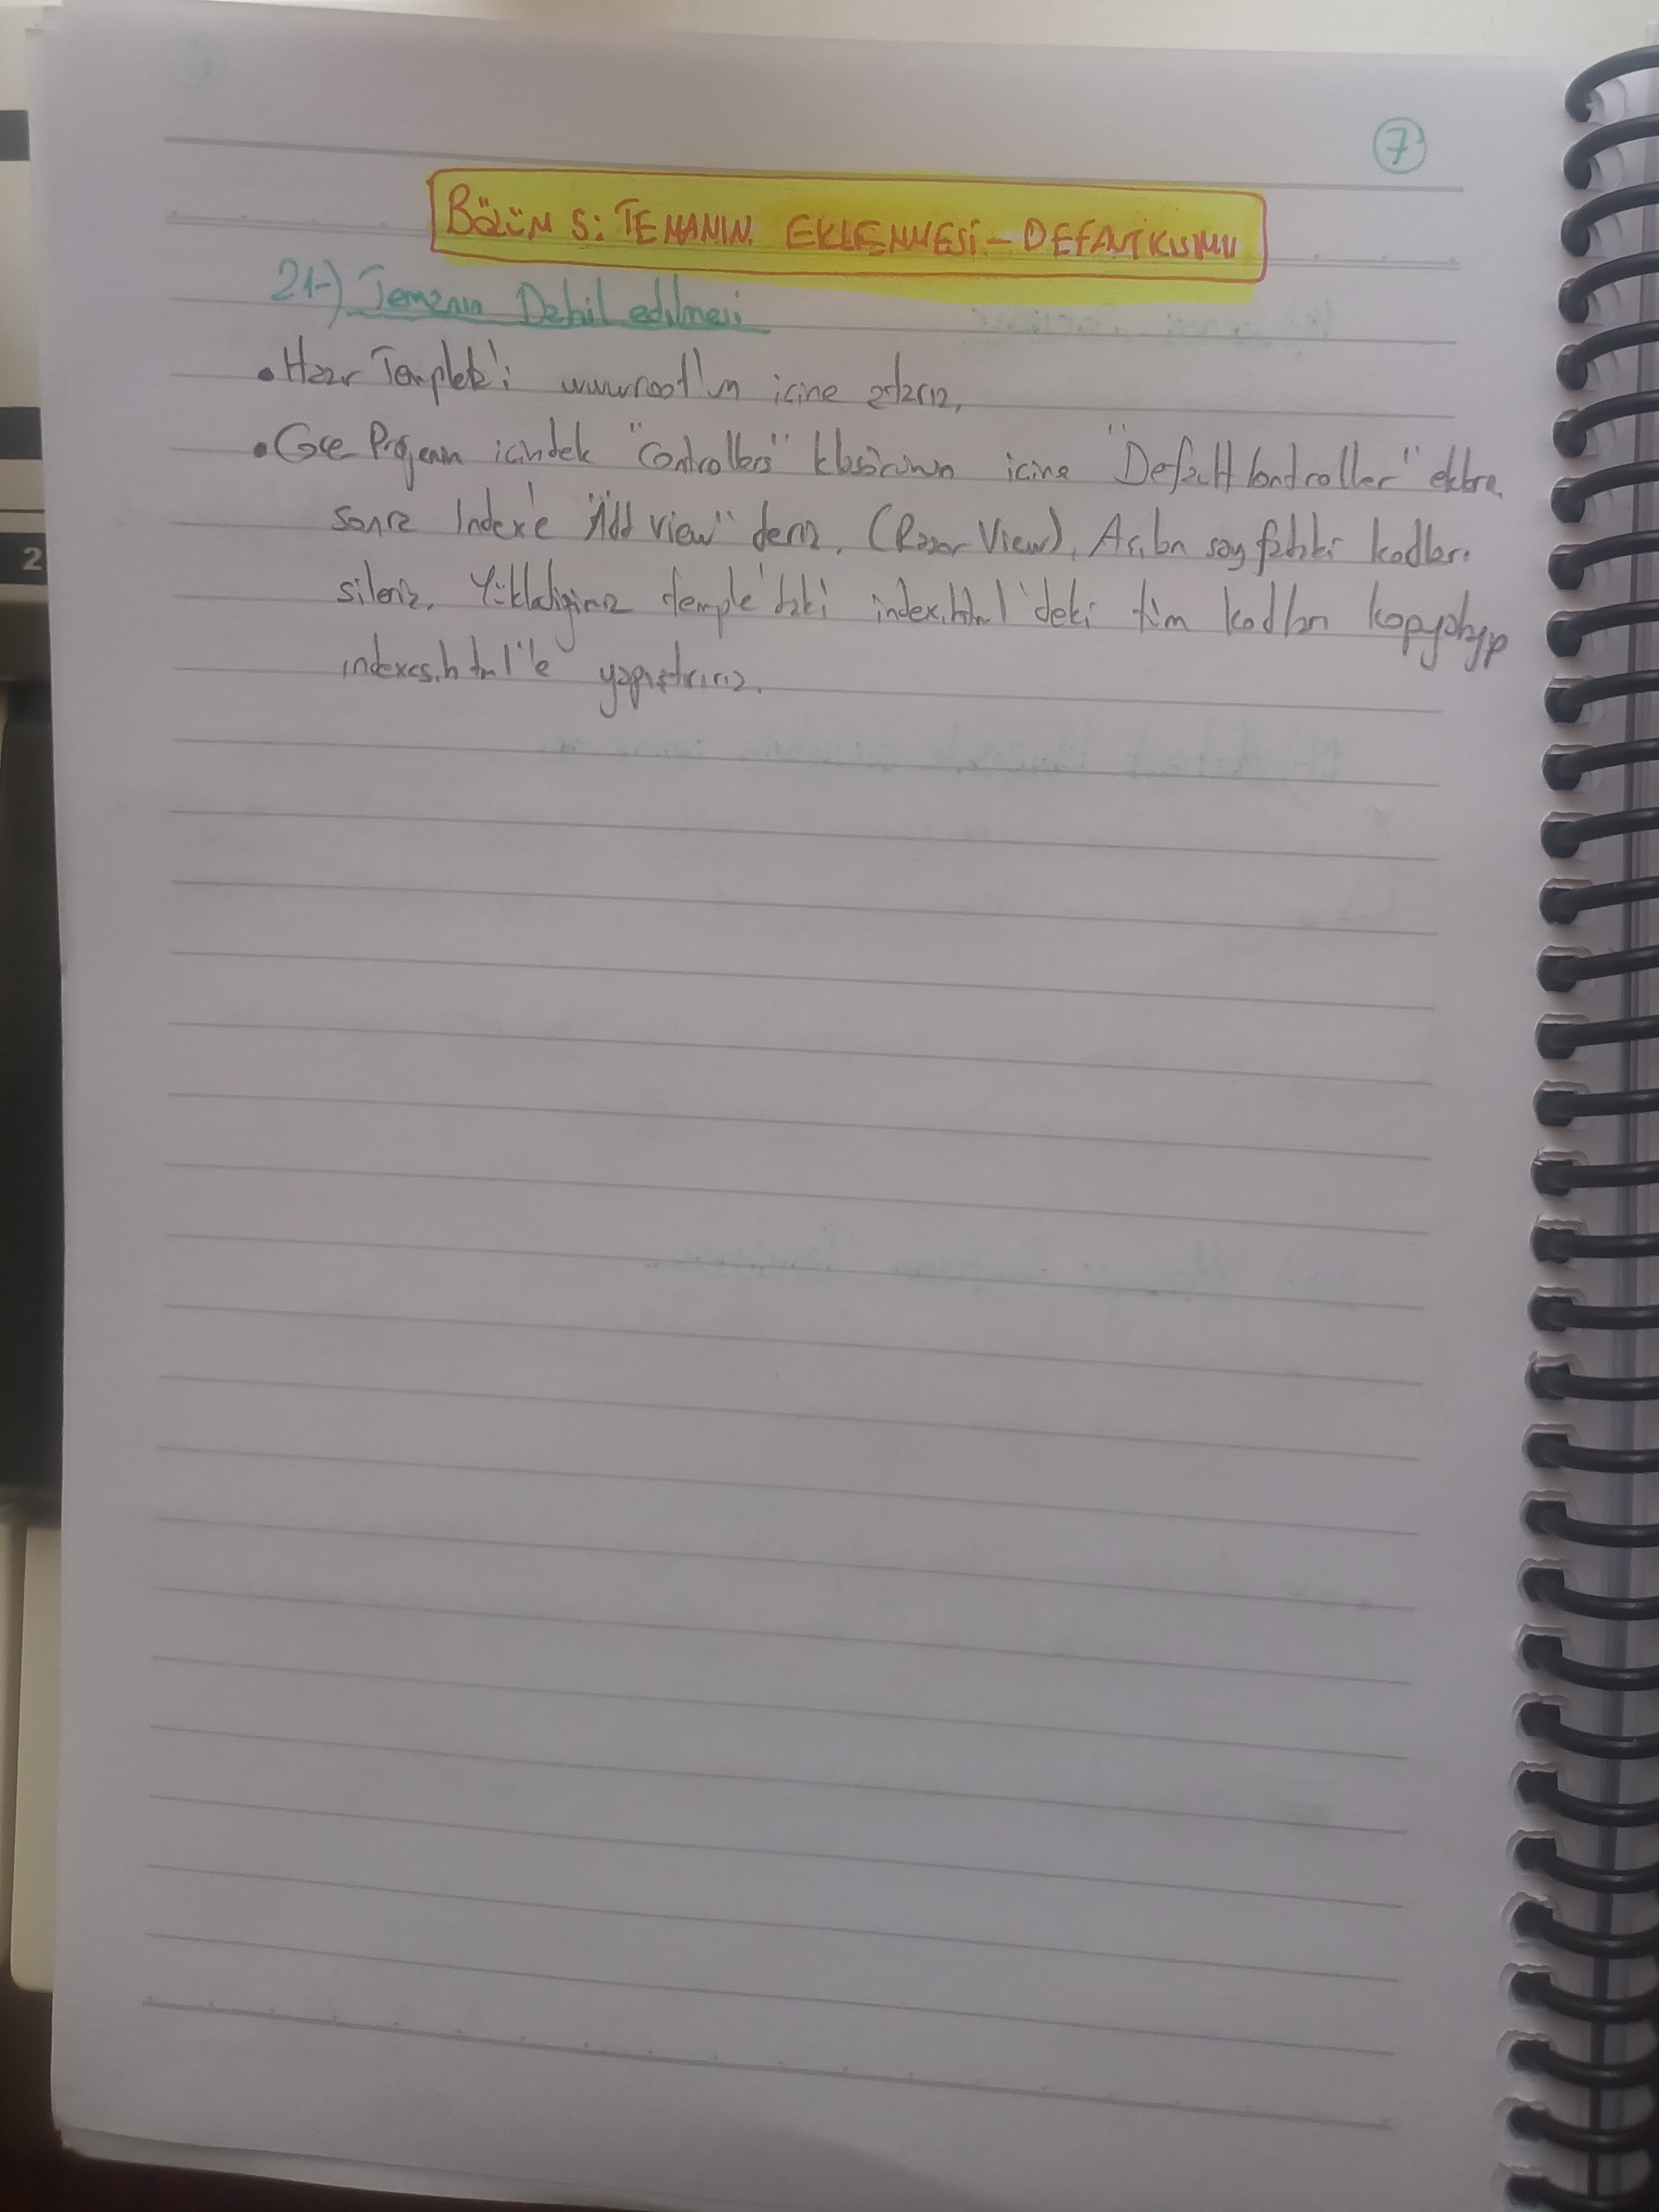 7
BÖLÜM 5: TEMANIN EKLENMESİ - DEFAULT KISMI
21-) Temanın Dahil edilmesi
• Hazır Template'i wwwroot'un içine atarız.
• Core Projenin içindeki "Controllers" klasörünün içine "Default Controller" ekle
sonra Index'e "Add View" deriz. (Razor View). Açılan sayfadaki kodları
sileriz. Yüklediğimiz temple'daki index.html'deki tüm kodları kopyalayıp
indexcs.html'e yapıştırırız.
2